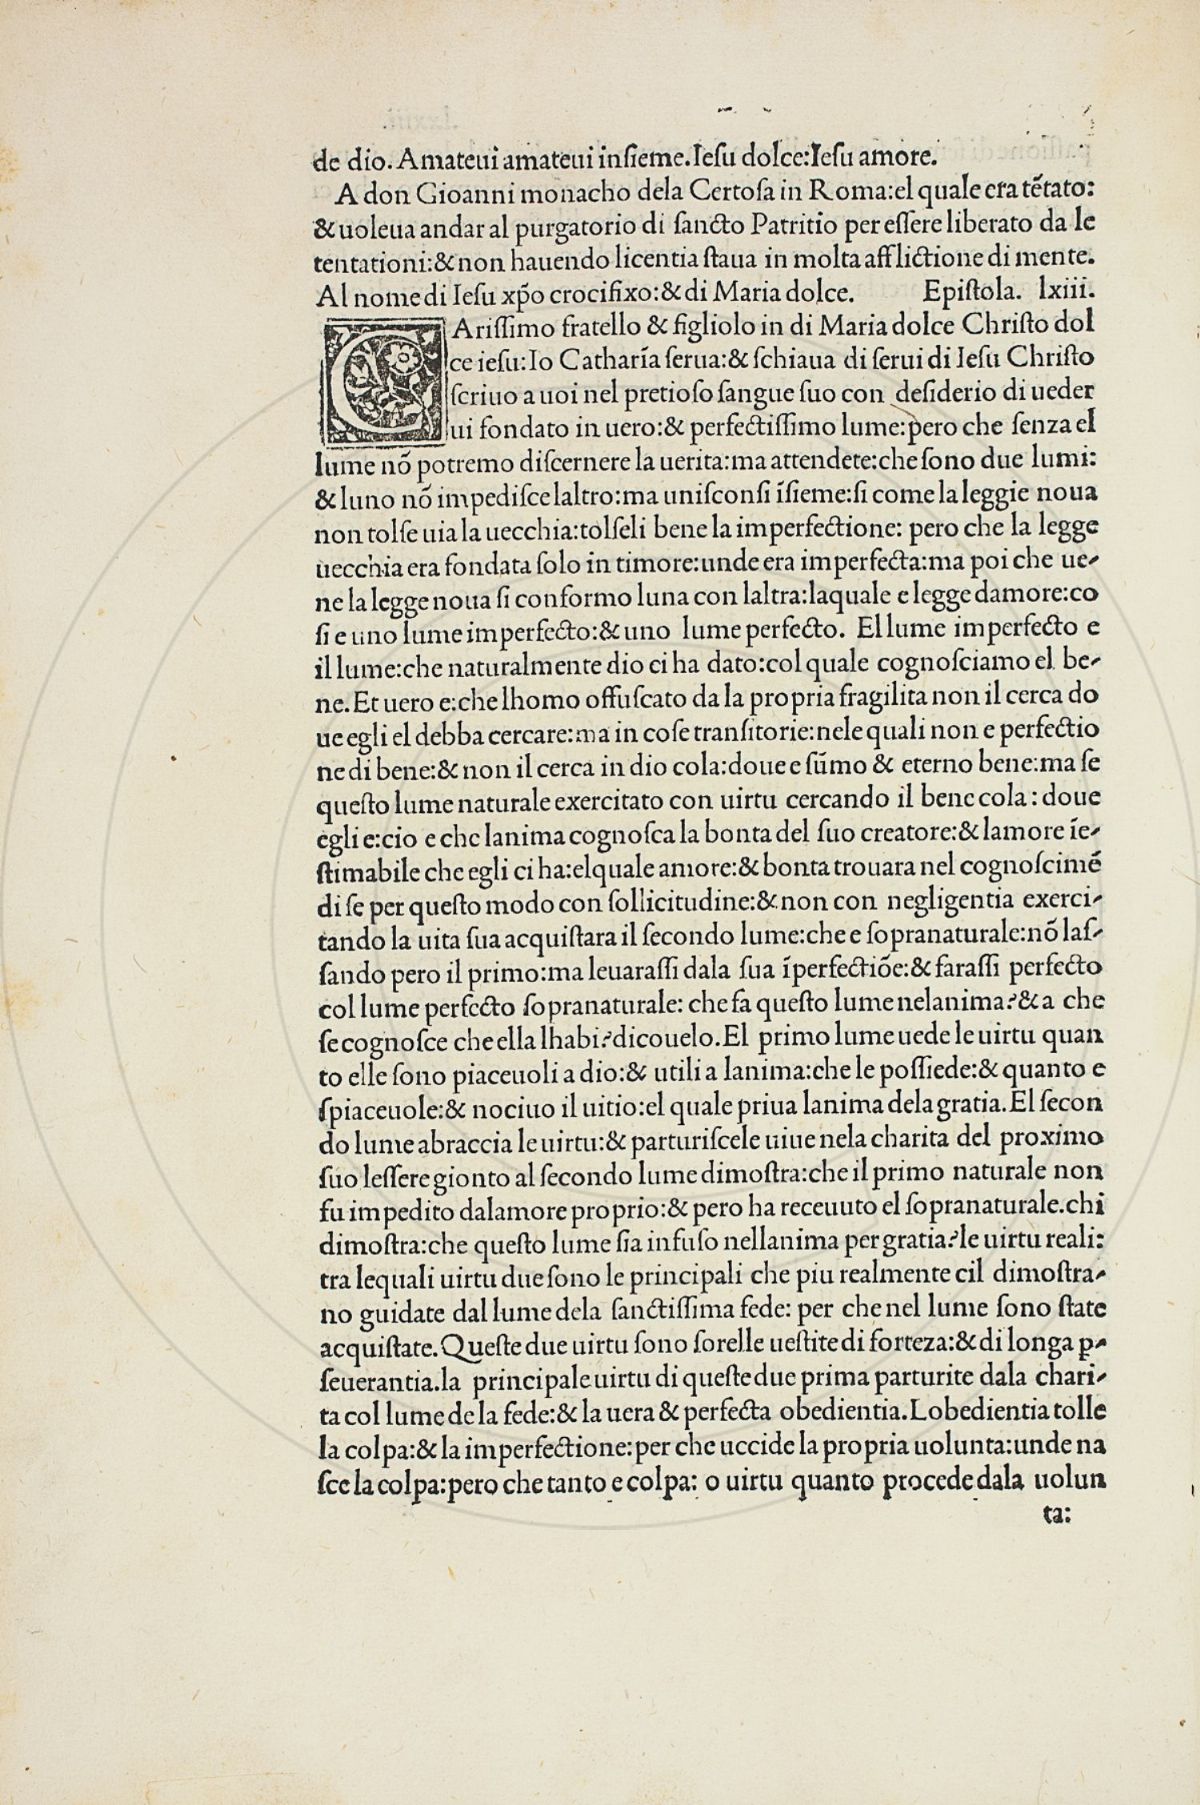 de dio. Amateui amateui insieme. Iesu dolce: Iesu amore.
A don Gioanni monacho dela Certosa in Roma: el quale era tẽtato:
& uoleua andar al purgatorio di sancto Patritio per essere liberato da le
tentationi: & non hauendo licentia staua in molta afflictione di mente.
Al nome di Iesu xp̃o crocifixo: & di Maria dolce. Epistola. lxiii.
CArissimo fratello & figliolo in di Maria dolce Christo dol
ce iesu: Io Catharĩa serua: & schiaua di serui di Iesu Christo
scriuo a uoi nel pretioso sangue suo con desiderio di ueder
ui fondato in uero: & perfectissimo lume: pero che senza el
lume nõ potremo discernere la uerita: ma attendete: che sono due lumi:
& luno nõ impedisce laltro: ma unisconsi ĩsieme: si come la leggie noua
non tolse uia la uecchia: tolseli bene la imperfectione: pero che la legge
uecchia era fondata solo in timore: unde era imperfecta: ma poi che ue-
ne la legge noua si conformo luna con laltra: laquale e legge damore: co
si e uno lume imperfecto: & uno lume perfecto. El lume imperfecto e
il lume: che naturalmente dio ci ha dato: col quale cognosciamo el be-
ne. Et uero e: che lhomo offuscato da la propria fragilita non il cerca do
ue egli el debba cercare: ma in cose transitorie: nele quali non e perfectio
ne di bene: & non il cerca in dio cola: doue e sũmo & eterno bene: ma se
questo lume naturale exercitato con uirtu cercando il bene cola: doue
egli e: cio e che lanima cognosca la bonta del suo creatore: & lamore ĩe-
stimabile che egli ci ha: elquale amore: & bonta trouara nel cognoscimẽ
di se per questo modo con sollicitudine: & non con negligentia exerci-
tando la uita sua acquistara il secondo lume: che e sopranaturale: nõ las-
sando pero il primo: ma leuarassi dala sua ĩperfectiõe: & farassi perfecto
col lume perfecto sopranaturale: che fa questo lume nelanima? & a che
se cognosce che ella lhabi? dicouelo. El primo lume uede le uirtu quan
to elle sono piaceuoli a dio: & utili a lanima: che le possiede: & quanto e
spiaceuole: & nociuo il uitio: el quale priua lanima dela gratia. El secon
do lume abraccia le uirtu: & parturiscele uiue nela charita del proximo
suo lessere gionto al secondo lume dimostra: che il primo naturale non
fu impedito dalamore proprio: & pero ha receuuto el sopranaturale. chi
dimostra: che questo lume sia infuso nellanima per gratia? le uirtu reali:
tra lequali uirtu due sono le principali che piu realmente cil dimostra-
no guidate dal lume dela sanctissima fede: per che nel lume sono state
acquistate. Queste due uirtu sono sorelle uestite di forteza: & di longa ꝑ-
seuerantia. la principale uirtu di queste due prima parturite dala chari-
ta col lume de la fede: & la uera & perfecta obedientia. Lobedientia tolle
la colpa: & la imperfectione: per che uccide la propria uolunta: unde na
sce la colpa: pero che tanto e colpa: o uirtu quanto procede dala uolun
ta: